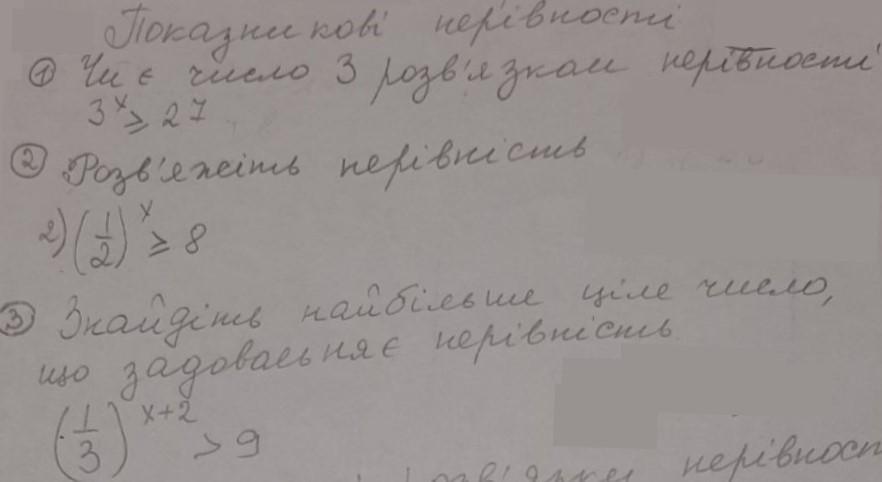 Показникові нерівності
① Чи є число 3 розв'язком нерівності
3^x ≥ 27
② Розв'яжіть нерівність
2) (1/2)^x ≥ 8
③ Знайдіть найбільше ціле число,
що задовольняє нерівність
(1/3)^{x+2} > 9
нерівност